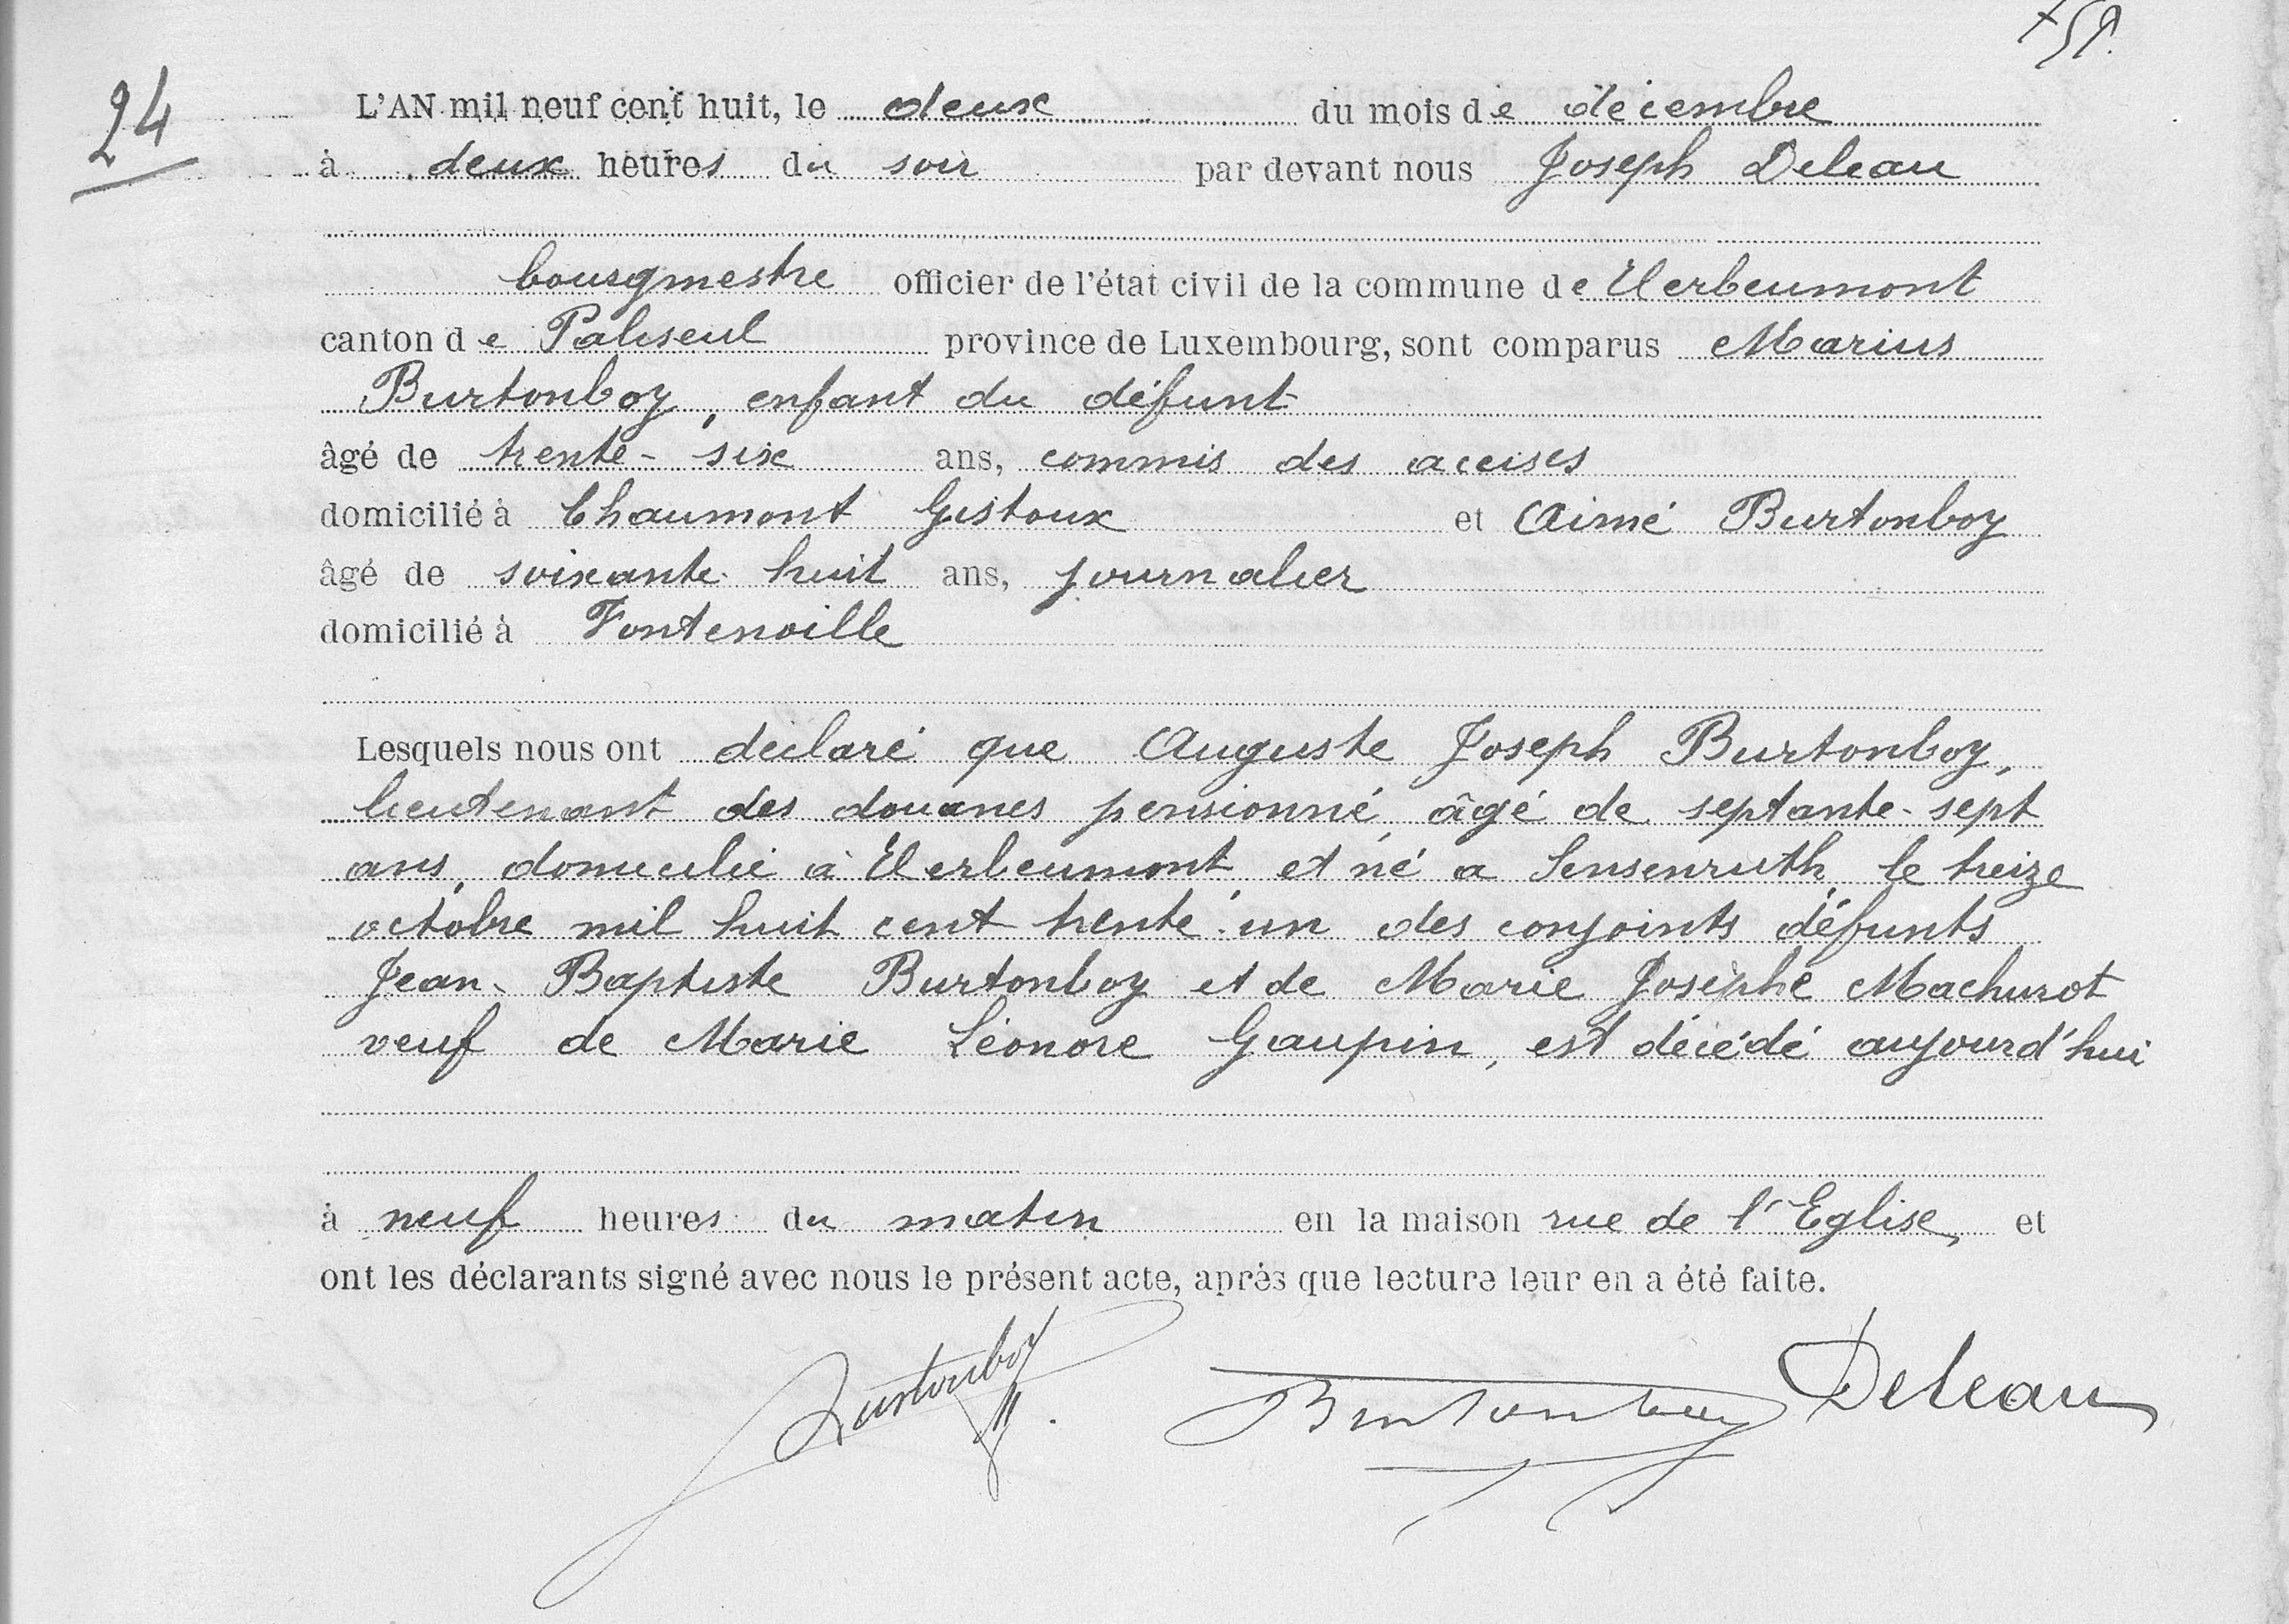 24
L'AN mil neuf cent huit, le deux du mois de décembre
à deux heures du soir par devant nous Joseph Deleau
bourgmestre officier de l'état civil de la commune de Herbeumont
canton de Paliseul province de Luxembourg, sont comparus Marius
Burtonboy, enfant du défunt
âgé de trente-six ans, commis des accises
domicilié à Chaumont Gistoux et Aimé Burtonboy
âgé de soixante-huit ans, journalier
domicilié à Fontenoille
Lesquels nous ont déclaré que Auguste Joseph Burtonboy,
lieutenant des douanes pensionné, âgé de septante-sept
ans, domicilié à Herbeumont, et né a Sensenruth, le treize
octobre mil huit cent trente-un des conjoints défunts
Jean-Baptiste Burtonboy et de Marie Josèphe Machurot
veuf de Marie Léonore Gaupin, est décédé aujourd'hui
à neuf heures du matin en la maison rue de l'Eglise, et
ont les déclarants signé avec nous le présent acte, après que lecture leur en a été faite.
Burtonboy Burtonboy Deleau